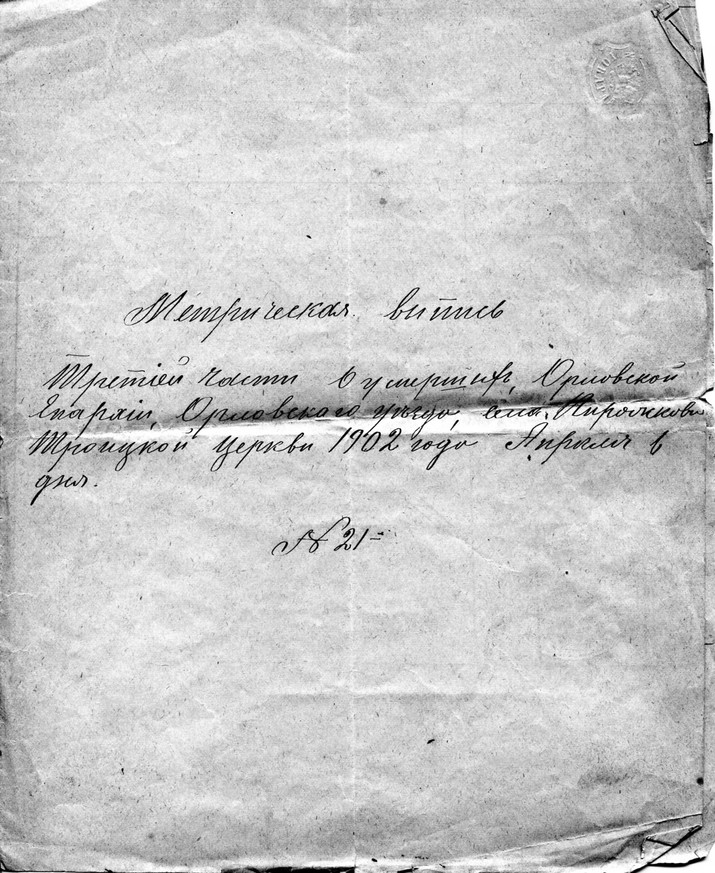 Метрическая выпись
Третіей части о умершихъ, Орловской
Епархіи, Орловскаго уѣзда, села
Троицкой церкви 1902 года Апрѣля 6
дня.
№ 21